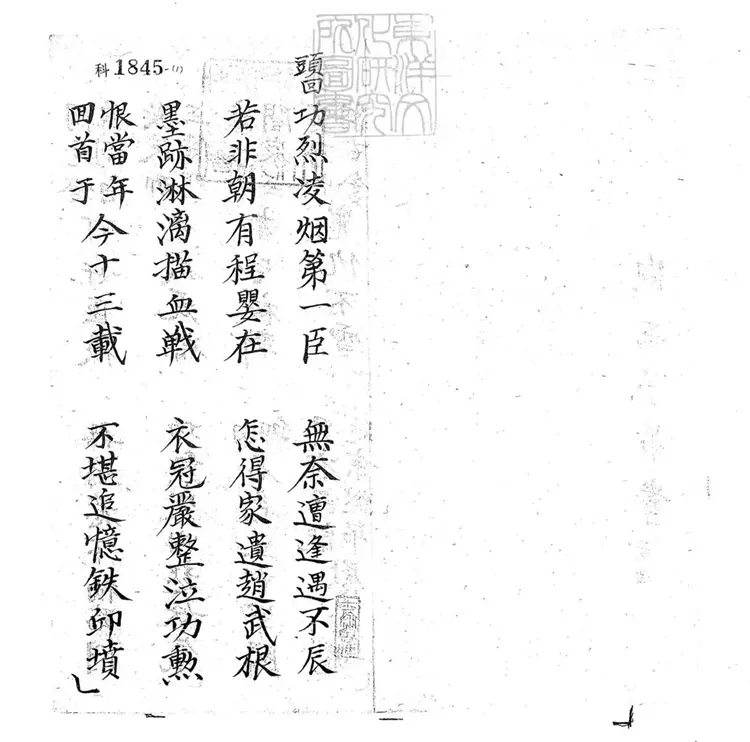 東洋文
化研究
所圖書
科1845-(1)
頭回
功烈凌烟第一臣　無奈遭逢遇不辰
若非朝有程嬰在　怎得家遺趙武根
墨跡淋漓描血戦　衣冠嚴整泣功勲
恨當年
囬首于
今十三載　不堪追憶鉄邱墳